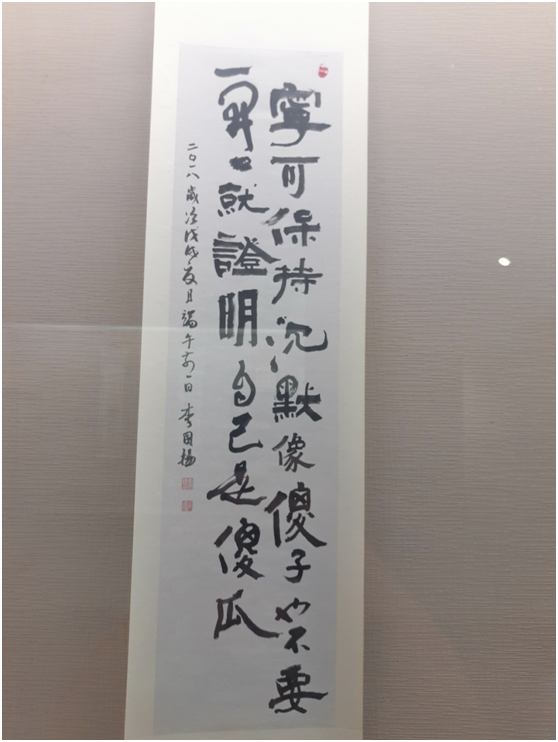 寧可保持沉默像傻子也不要
一開口就證明自己是傻瓜
二〇一八歲次戊戌夏月端午前一日 李国揚